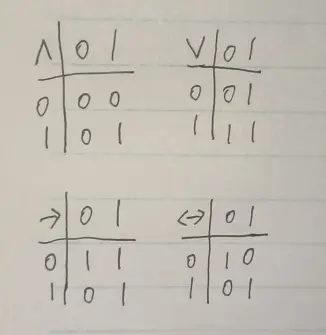 ∧ 0 1
0 0 0
1 0 1
∨ 0 1
0 0 1
1 1 1
→ 0 1
0 1 1
1 0 1
↔ 0 1
0 1 0
1 0 1